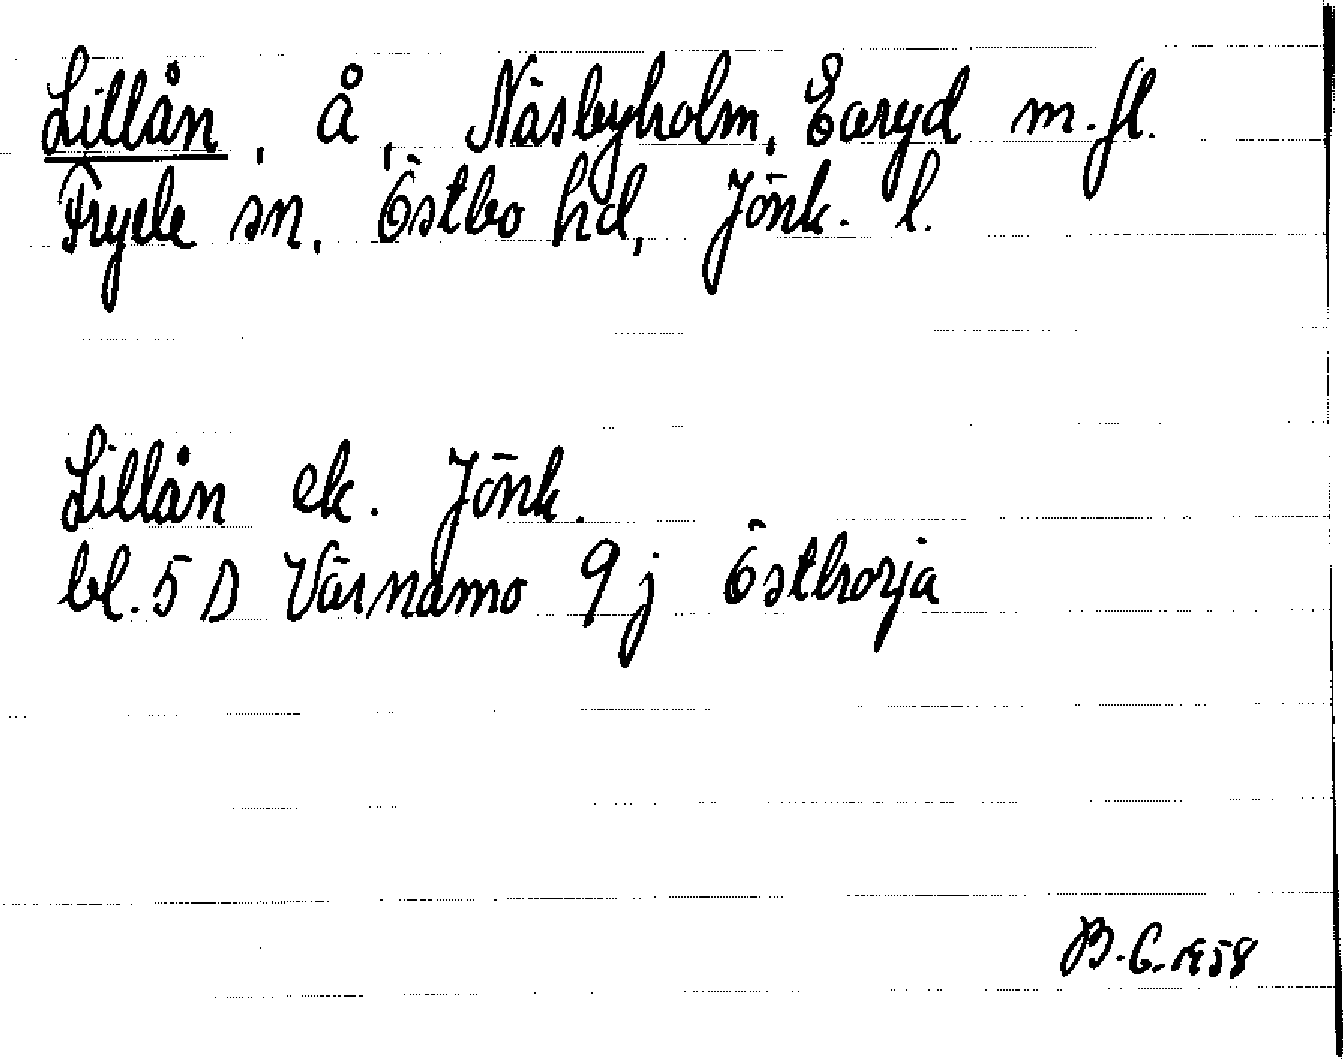 Lillån, å, Näsbyholm, Earyd m.fl.
Fryele sn. Östbo hd, Jönk. l.
Lillån ek. Jönk.
bl. 5 D Värnamo 9 j Östhorja
B.G. 1958